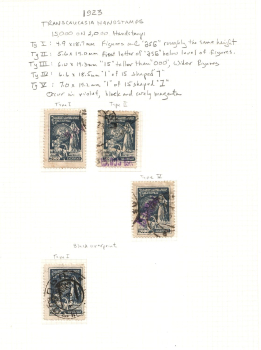 1923
TRANSCAUCASIA HANDSTAMPS
15,000 on 2,000 Handstamp
Ty I : 4.9 x 18.7mm Figures and "руб" roughly the same height
Ty II : 5.6 x 19.0mm First letter of "руб" below level of figures.
Ty III : 6.0 x 19.3mm "15" taller than "000", Wider figures
Ty IV : 6.6 x 18.5mm "1" of 15 shaped "1"
Ty V : 7.0 x 19.2mm "1" of 15 shaped "I"
Occur in violet, black and rarely magenta
Type I Type II
Type V
Black overprint
Type I